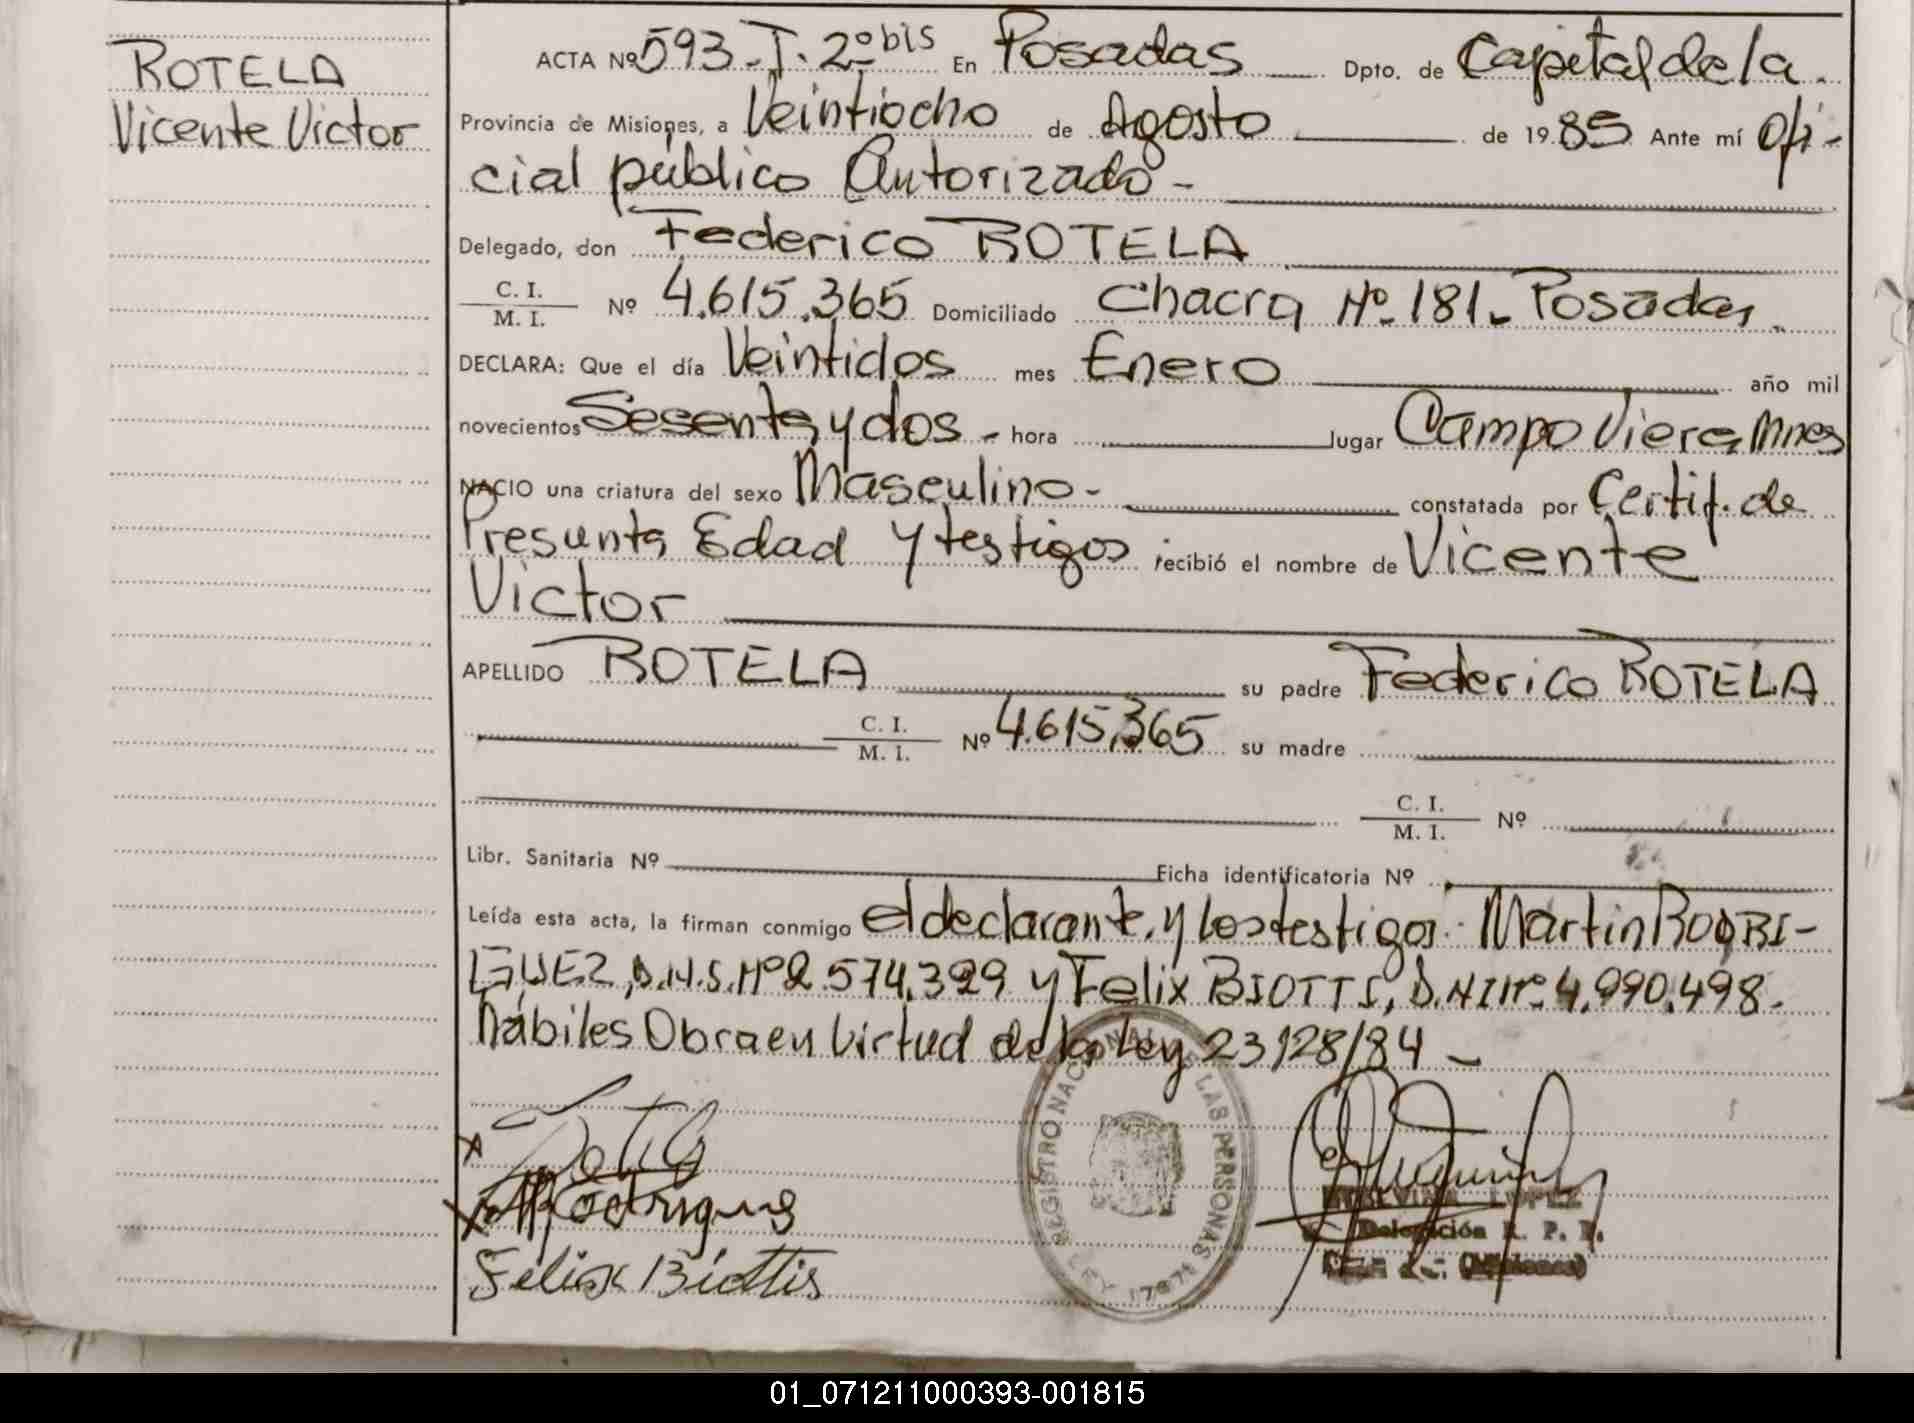 ROTELA
Vicente Victor
ACTA Nº 593-T. 2º bis En Posadas Dpto. de Capital de la
Provincia de Misiones, a Veintiocho de Agosto de 1985 Ante mí Ofi-
cial público Autorizado-
Delegado, don Federico ROTELA
C. I. / M. I. Nº 4.615.365 Domiciliado Chacra Nº 181- Posadas
DECLARA: Que el día Veintidos mes Enero año mil
novecientos Sesenta y dos - hora lugar Campo Viera, Mnes
NACIO una criatura del sexo Masculino- constatada por Certif. de
Presunta Edad y testigos recibió el nombre de Vicente
Victor
APELLIDO ROTELA su padre Federico ROTELA
C. I. / M. I. Nº 4.615.365 su madre
C. I. / M. I. Nº
Libr. Sanitaria Nº Ficha identificatoria Nº
Leída esta acta, la firman conmigo el declarante, y los testigos. Martin RODRI-
GUEZ, D.N.I. Nº 2.574.329 y Felix BIOTTI, D.NI Nº 4.990.498-
hábiles Obra en virtud de la Ley 23128/84 -
REGISTRO NACIONAL DE LAS PERSONAS
LEY 17671
Rodriguez
Felix Biottis
LOPEZ
Delegación R. P. P.
(Misiones)
01_071211000393-001815